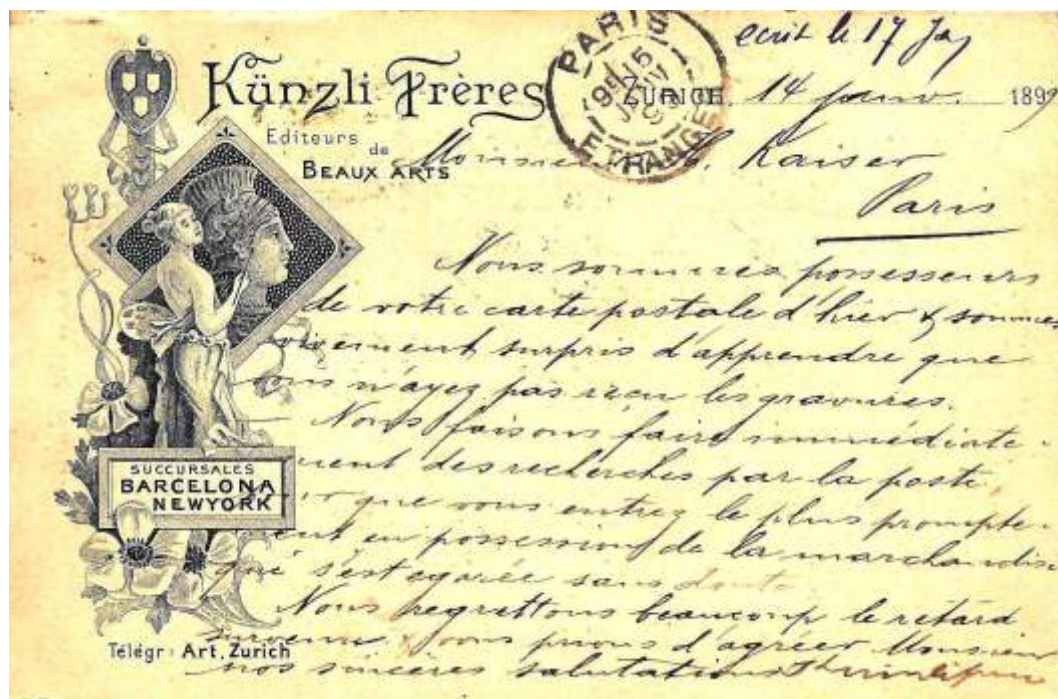 ecrit le 17 Jan
Künzli Frères
PARIS
15
JANV
ETRANGER
ZURICH, 14 janv. 1899
Editeurs de
BEAUX ARTS
Monsieur Kaiser
Paris
Nous sommes possesseurs
de votre carte postale d'hier & sommes
vivement surpris d'apprendre que
vous n'ayez pas reçu les gravures.
Nous faisons faire immédiate-
ment des recherches par la poste
pour que vous entrez le plus prompte-
ment en possession de la marchandise
qui s'est egarée sans doute
Nous regrettons beaucoup le retard
survenu & vous prions d'agréer Monsieur
nos sincères salutations
SUCCURSALES
BARCELONA
NEWYORK
Télégr: Art. Zurich